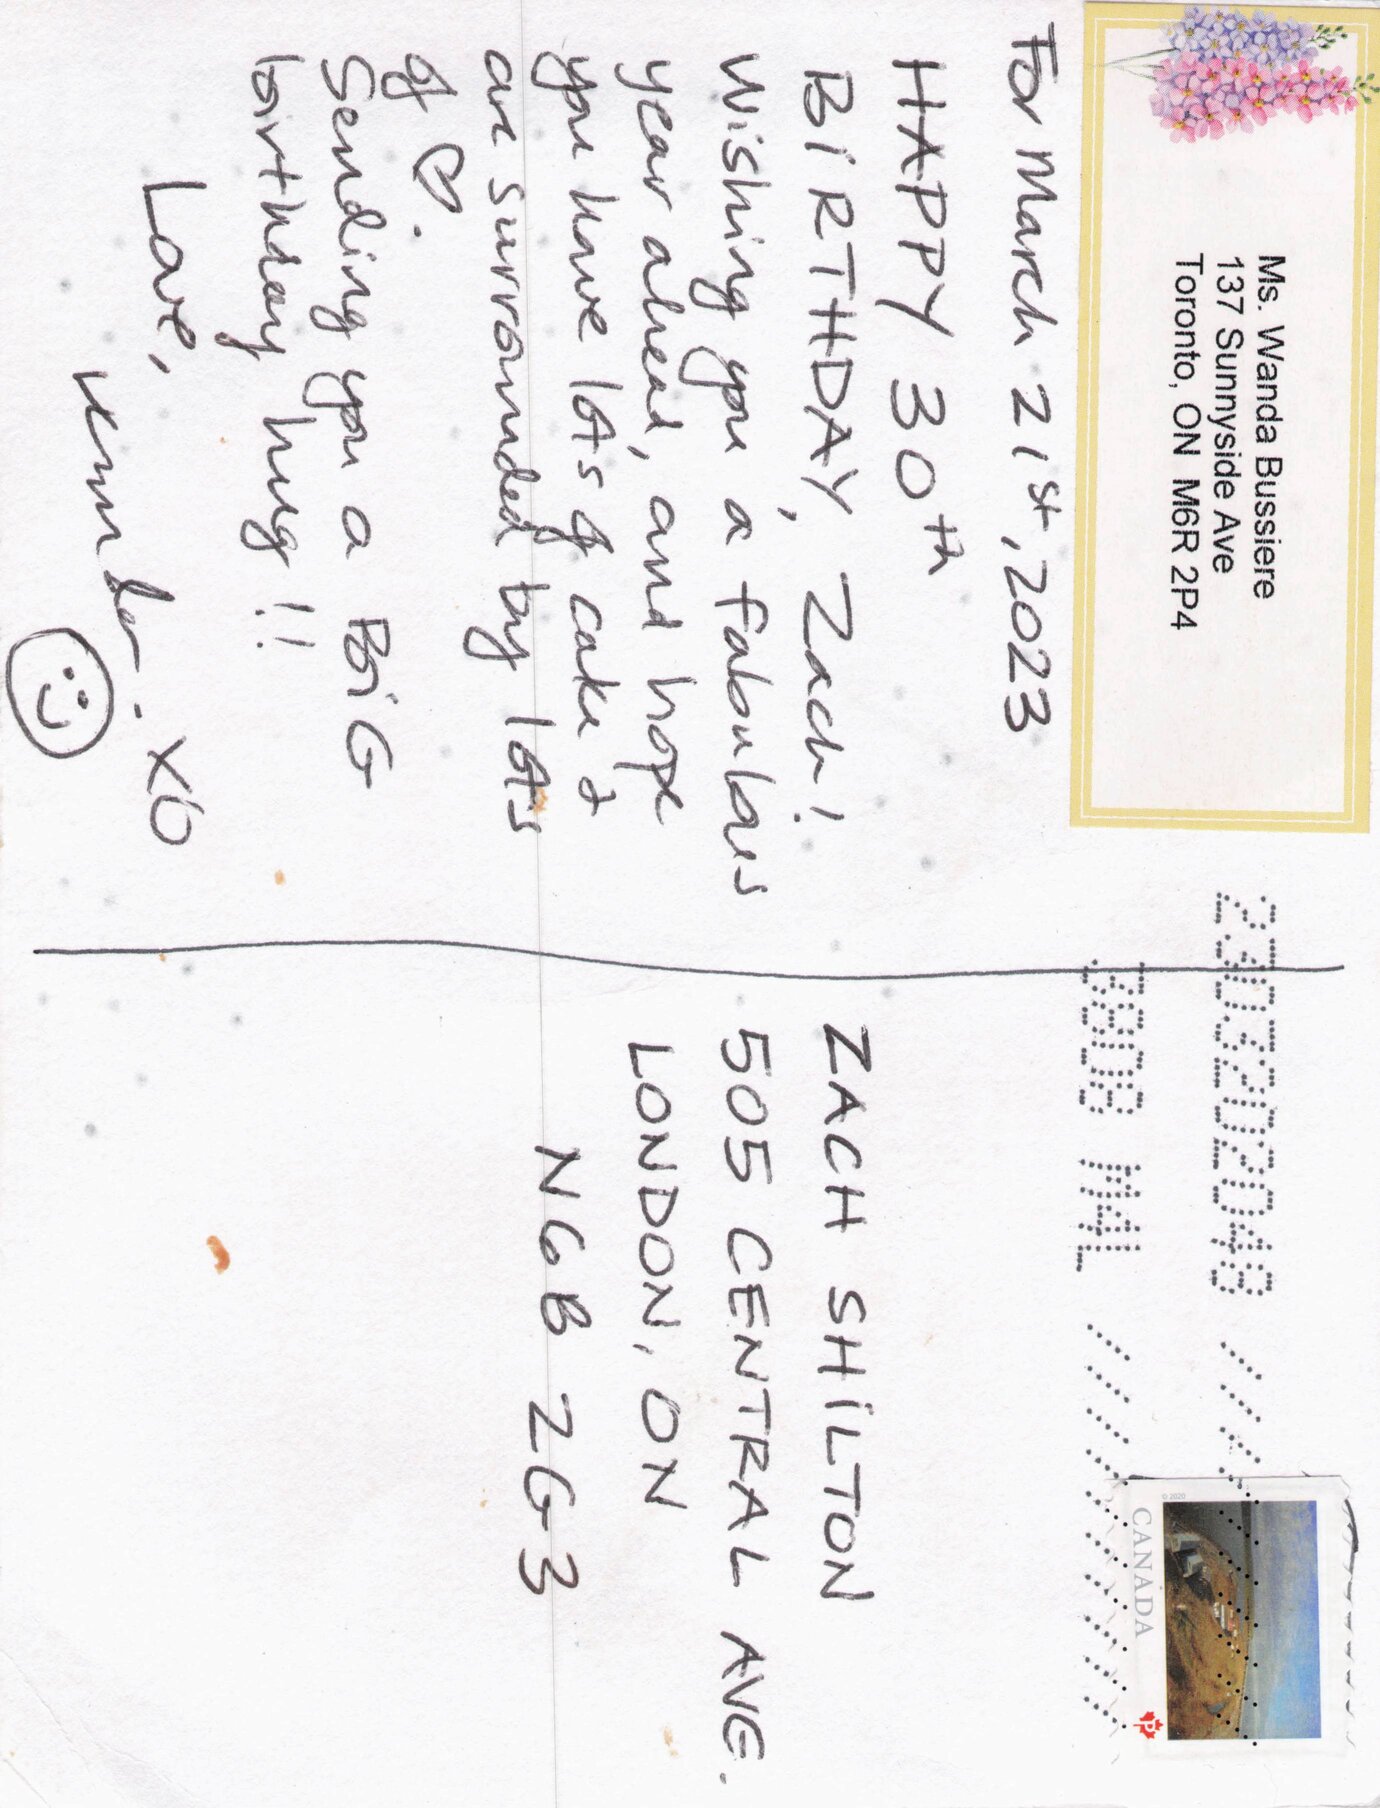 Ms. Wanda Bussiere
137 Sunnyside Ave
Toronto, ON M6R 2P4
For March 21st, 2023
HAPPY 30th
BIRTHDAY, Zach!
Wishing you a fabulous
year ahead, and hope
you have lots of cake &
are surrounded by lots
of ♡.
Sending you a BIG
birthday hug!!
Love,
XO
2303202048
3808 M4L
© 2020
CANADA
P
ZACH SHILTON
505 CENTRAL AVE.
LONDON, ON
N6B 2G3